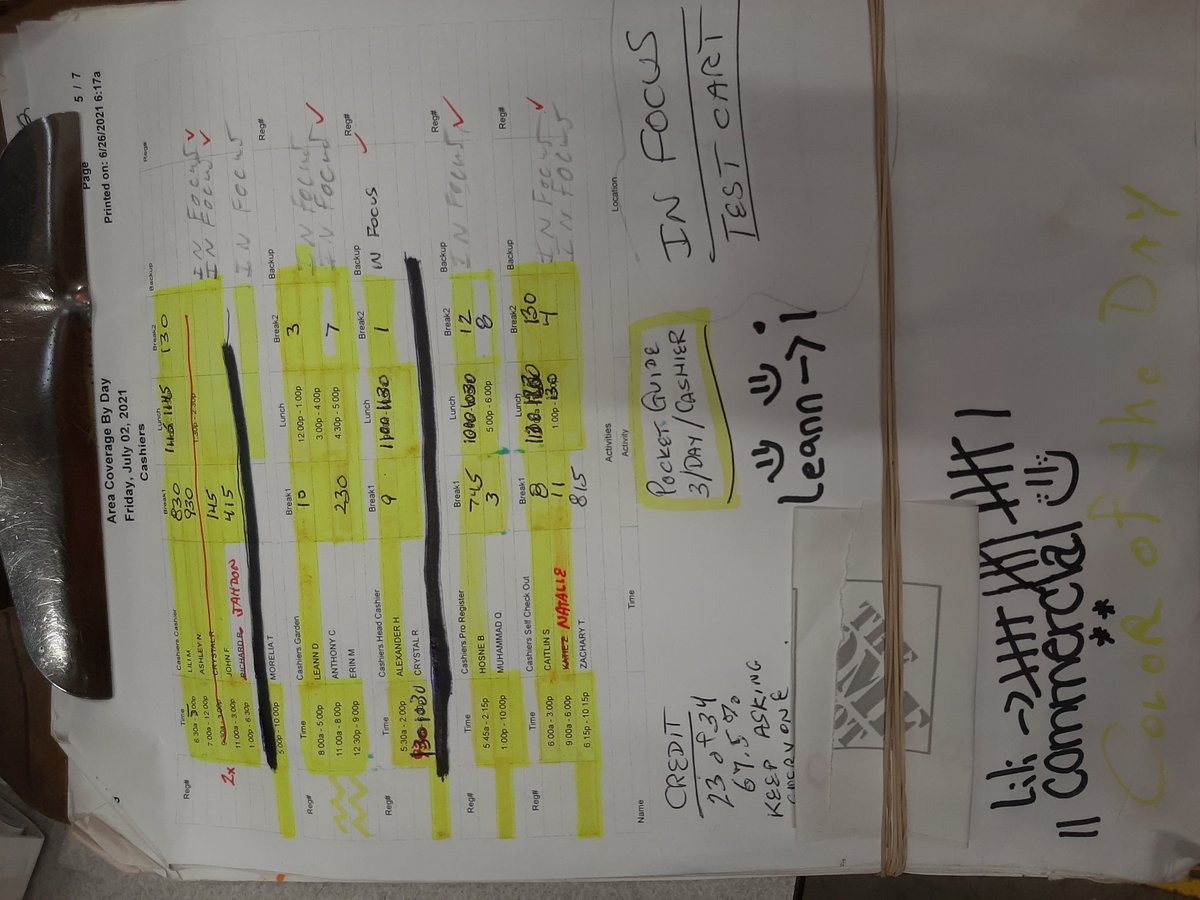 Page 5 / 7
Printed on: 6/26/2021 6:17a
Area Coverage By Day
Friday, July 02, 2021
Cashiers
Reg# Time Cashiers Cashier Break1 Lunch Break2 Backup Reg#
6:30a 3:00p LILI M 830 1145 130 IN FOCUS
7:00a - 12:00p ASHLEY N 930 IN FOCUS
2x 9:30a - 3:00p CRYSTAL R 1:30p - 2:30p
11:00a - 3:00p JOHN F 145 IN FOCUS
1:00p - 6:30p RICHARD R JAHDON 415
5:00p - 10:00p MORELIA T
Reg# Time Cashiers Garden Break1 Lunch Break2 Backup Reg#
8:00a - 5:00p LEANN D 10 12:00p - 1:00p 3 IN FOCUS
11:00a - 8:00p ANTHONY C 3:00p - 4:00p IN FOCUS
12:30p - 9:00p ERIN M 230 4:30p - 5:00p 7
Reg# Time Cashiers Head Cashier Break1 Lunch Break2 Backup Reg#
5:30a - 2:00p ALEXANDER H 9 1100 1130 1 IN FOCUS
930 1030 CRYSTAL R
Reg# Time Cashiers Pro Register Break1 Lunch Break2 Backup Reg#
5:45a - 2:15p HOSNE B 745 12 IN FOCUS
1:00p - 10:00p MUHAMMAD Q 3 5:00p - 6:00p 8
Reg# Time Cashiers Self Check Out Break1 Lunch Break2 Backup Reg#
6:00a - 3:00p CAITLIN S 8 130 IN FOCUS
9:00a - 6:00p NATALIE 11 1:00p 4 IN FOCUS
6:15p - 10:15p ZACHARY T 815
Activities
Name Time Activity Location
CREDIT
23 of 34
67.5%
KEEP ASKING
EVERYONE
POCKET GUIDE
3/DAY/CASHIER
IN FOCUS
TEST CART
Leann → 1
THE HOME
Lili →
11 commercial
**
COLOR of the DAY